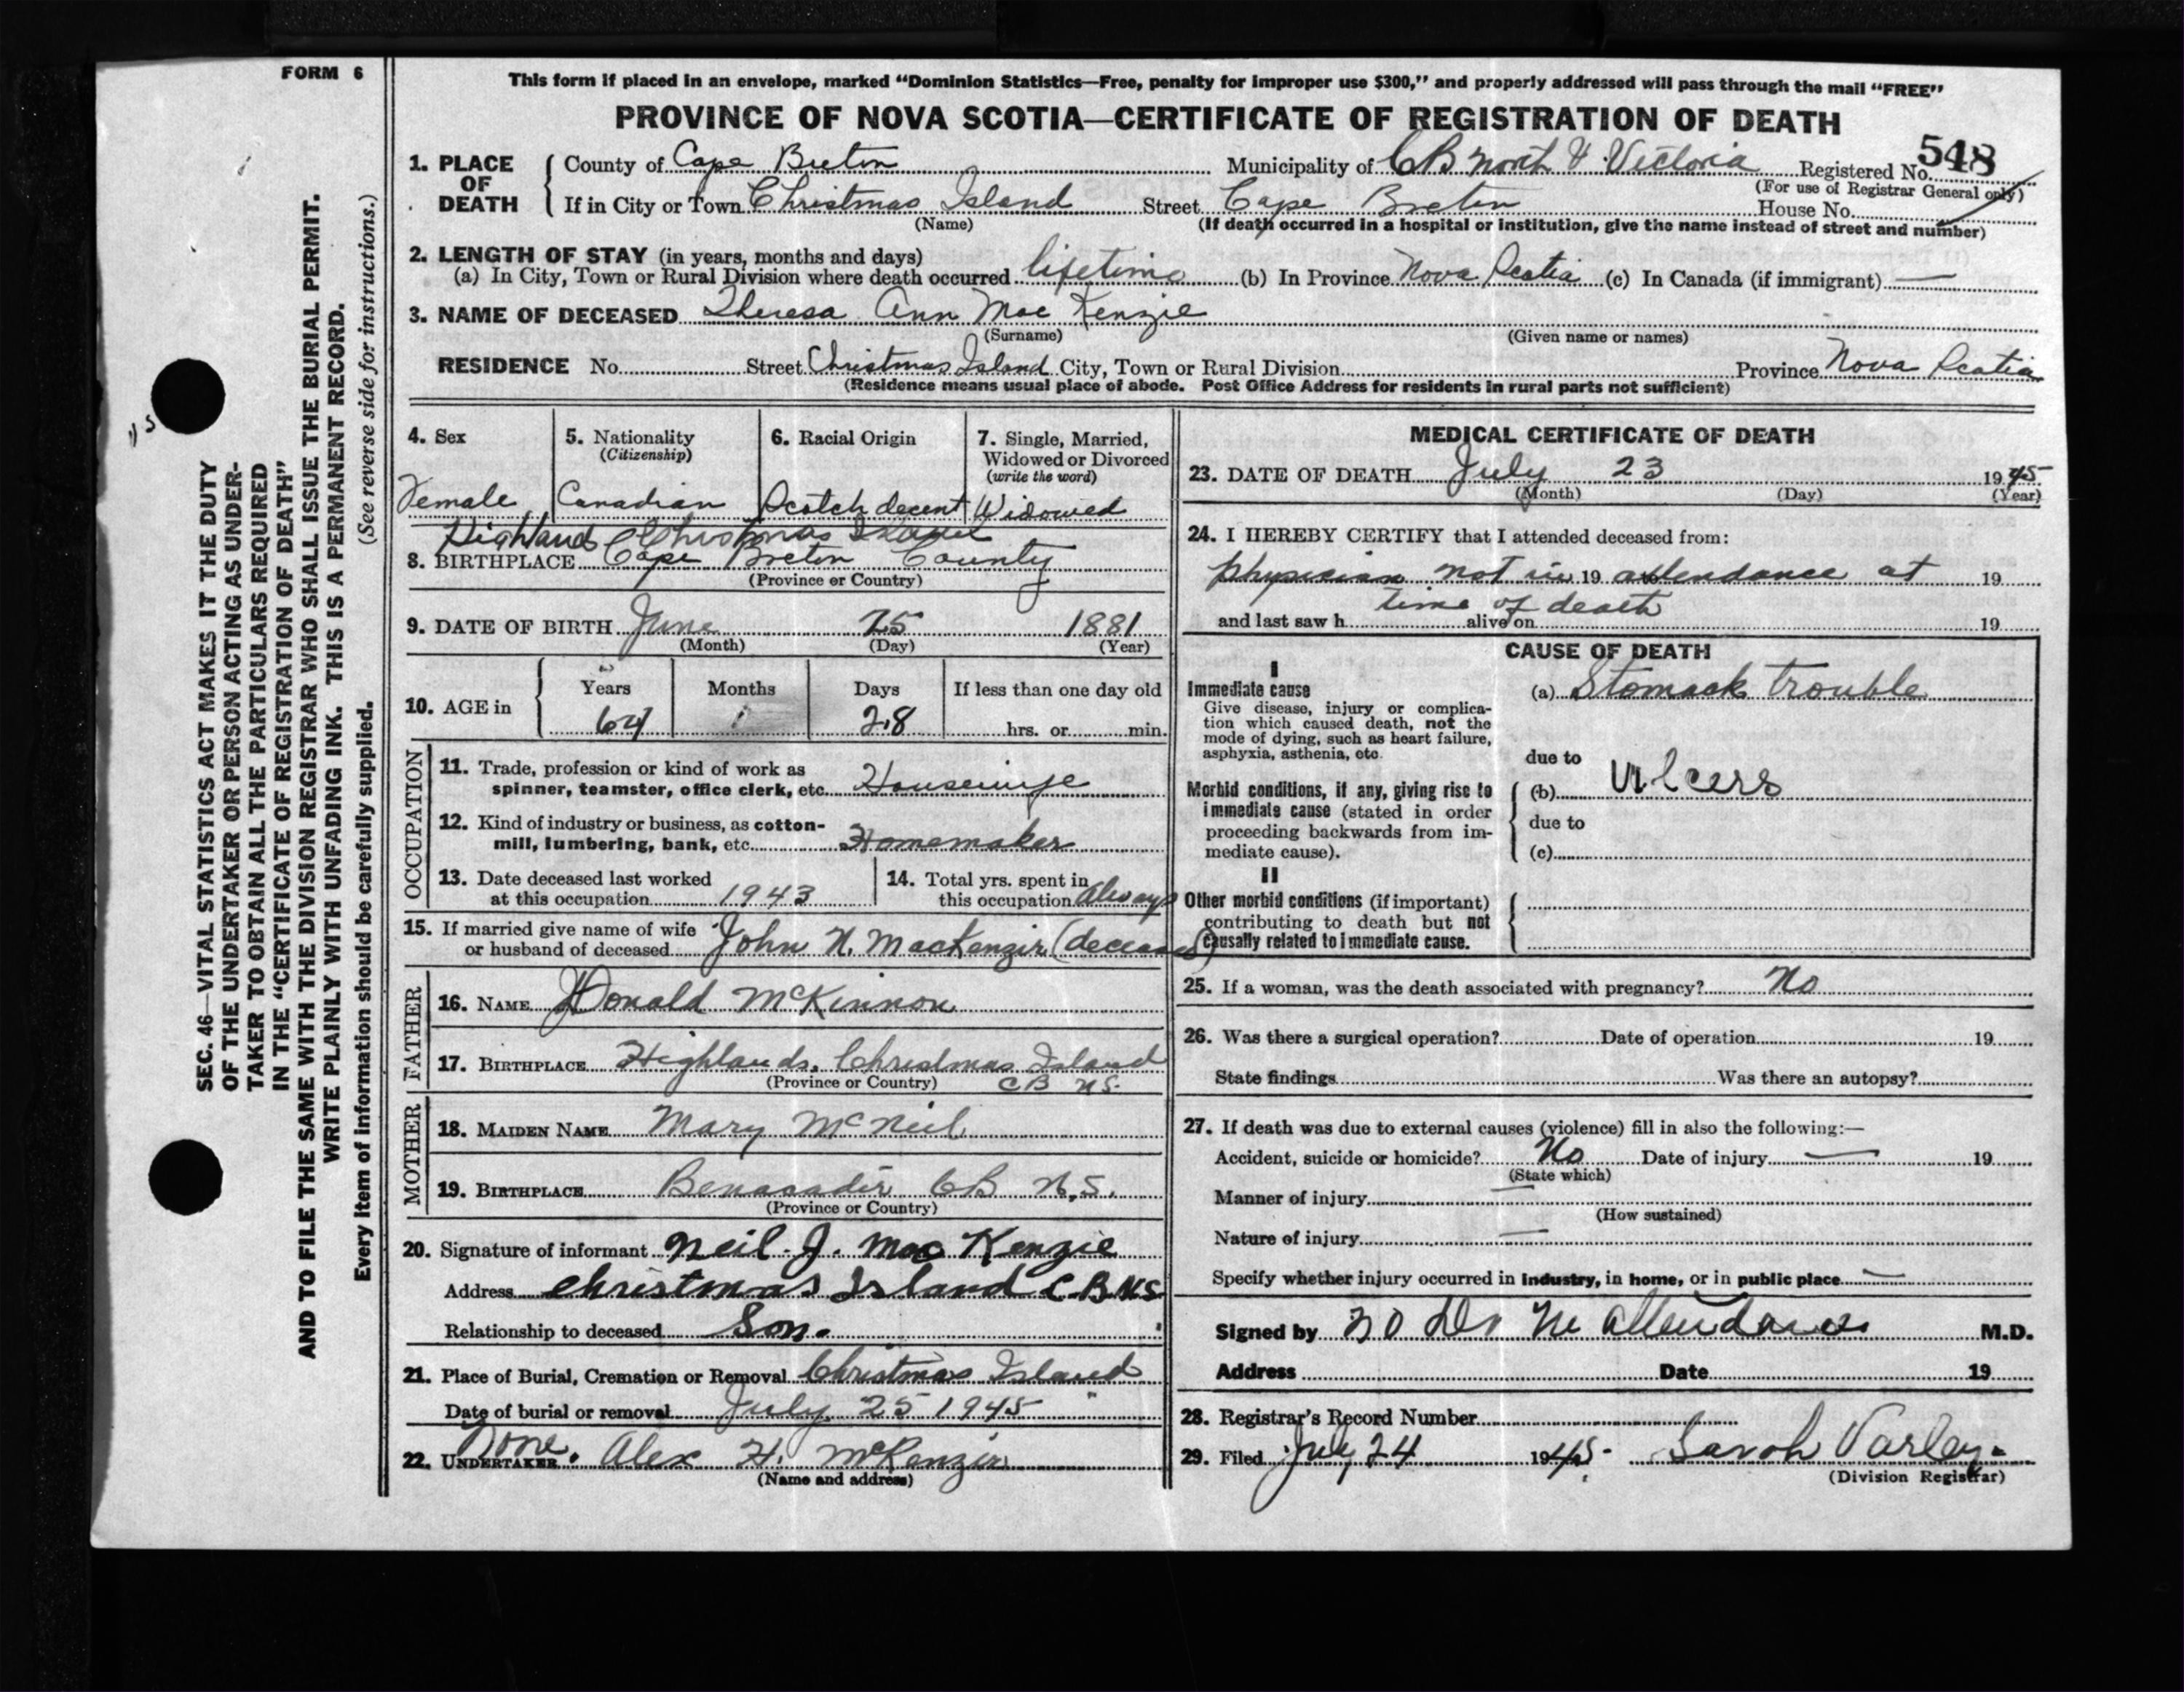 FORM 6
This form if placed in an envelope, marked “Dominion Statistics—Free, penalty for improper use $300,” and properly addressed will pass through the mail “FREE”
PROVINCE OF NOVA SCOTIA—CERTIFICATE OF REGISTRATION OF DEATH
SEC. 46—VITAL STATISTICS ACT MAKES IT THE DUTY
OF THE UNDERTAKER OR PERSON ACTING AS UNDER-
TAKER TO OBTAIN ALL THE PARTICULARS REQUIRED
IN THE “CERTIFICATE OF REGISTRATION OF DEATH”
AND TO FILE THE SAME WITH THE DIVISION REGISTRAR WHO SHALL ISSUE THE BURIAL PERMIT.
WRITE PLAINLY WITH UNFADING INK. THIS IS A PERMANENT RECORD.
Every item of information should be carefully supplied. (See reverse side for instructions.)
1. PLACE OF DEATH
County of Cape Breton Municipality of CB North & Victoria Registered No. 548
(For use of Registrar General only)
If in City or Town Christmas Island Street Cape Breton House No.
(Name) (If death occurred in a hospital or institution, give the name instead of street and number)
2. LENGTH OF STAY (in years, months and days)
(a) In City, Town or Rural Division where death occurred lifetime (b) In Province Nova Scotia (c) In Canada (if immigrant) —
3. NAME OF DECEASED Theresa Ann Mac Kenzie
(Surname) (Given name or names)
RESIDENCE No. Street Christmas Island City, Town or Rural Division Province Nova Scotia
(Residence means usual place of abode. Post Office Address for residents in rural parts not sufficient)
4. Sex
Female
5. Nationality
(Citizenship)
Canadian
6. Racial Origin
Scotch decent
7. Single, Married,
Widowed or Divorced
(write the word)
Widowed
Highland Christmas Island
8. BIRTHPLACE Cape Breton County
(Province or Country)
9. DATE OF BIRTH June 25 1881
(Month) (Day) (Year)
10. AGE in
Years Months Days If less than one day old
64 28 hrs. or min.
OCCUPATION
11. Trade, profession or kind of work as
spinner, teamster, office clerk, etc. Housewife
12. Kind of industry or business, as cotton-
mill, lumbering, bank, etc. Homemaker
13. Date deceased last worked
at this occupation 1943
14. Total yrs. spent in
this occupation always
15. If married give name of wife
or husband of deceased John N. MacKenzie (deceased)
FATHER
16. NAME Donald McKinnon
17. BIRTHPLACE Highlands, Christmas Island
(Province or Country) CB NS.
MOTHER
18. MAIDEN NAME Mary McNeil
19. BIRTHPLACE Benacadie CB N.S.
(Province or Country)
20. Signature of informant Neil. J. Mac Kenzie
Address christmas Island C.B.N.S
Relationship to deceased Son.
21. Place of Burial, Cremation or Removal Christmas Island
Date of burial or removal July 25 1945
None.
22. UNDERTAKER. Alex H. McKenzie
(Name and address)
MEDICAL CERTIFICATE OF DEATH
23. DATE OF DEATH July 23 1945
(Month) (Day) (Year)
24. I HEREBY CERTIFY that I attended deceased from:
physician not in 19 attendance at 19
time of death
and last saw h alive on 19
CAUSE OF DEATH
I
Immediate cause
Give disease, injury or complica-
tion which caused death, not the
mode of dying, such as heart failure,
asphyxia, asthenia, etc.
(a) Stomack trouble
due to
Morbid conditions, if any, giving rise to
immediate cause (stated in order
proceeding backwards from im-
mediate cause).
(b) Ulcers
due to
(c)
II
Other morbid conditions (if important)
contributing to death but not
causally related to immediate cause.
25. If a woman, was the death associated with pregnancy? No
26. Was there a surgical operation? Date of operation 19
State findings Was there an autopsy?
27. If death was due to external causes (violence) fill in also the following:—
Accident, suicide or homicide? No Date of injury — 19
(State which)
Manner of injury —
(How sustained)
Nature of injury —
Specify whether injury occurred in industry, in home, or in public place —
Signed by No Dr in attendance M.D.
Address Date 19
28. Registrar’s Record Number
29. Filed July 24 1945. Sarah Varley.
(Division Registrar)